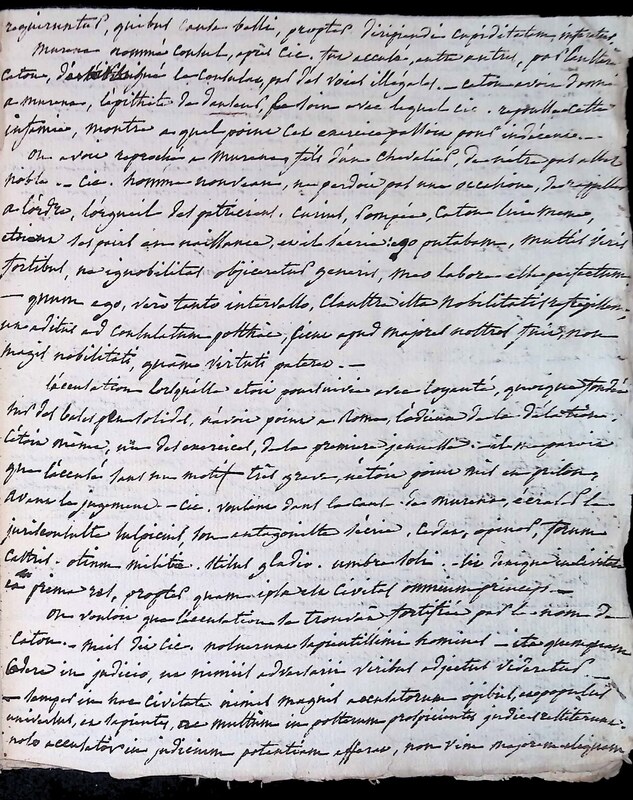 requiruntur, quibus causa belli, propter diripiendi cupiditatem, inferatur
Murena nommé consul, après cic. fut accusé, entre autres, par l'austère
Caton, d'avoir le consulat, par des voies illégales. — caton avoit donné
a murena, l'épithete de danseur, le soin avec lequel cic. repousse cette
infamie, montre a quel point cet exercice passoit pour indécent. —
On avoit reproché a Murena, fils d'un chevalier, de n'être pas assez
noble. — Cic. homme nouveau, ne perdoit pas une occasion, de rappeller
a l'ordre, l'orgueil des patriciens. Curius, Pompée, Caton lui meme,
étoient ses pairs en naissance, et il s'écrie: ego putabam, multis viris
fortibus, ne ignobilitas objiceretur generis, meo labore esse perfectum.
— quum ego, vero tanto intervallo, claustra ista nobilitatis refregissem
ut aditus ad consulatum posthac, sicut apud majores nostros fuit, non
magis nobilitati, quam virtuti pateret. —
L'accusation lorsqu'elle etoit poursuivie avec loyauté, quoique fondée
sur des bases peu solides, n'avoit point a Rome, l'odieux de la délation.
C'étoit même, un des exercices, de la premiere jeunesse. — il ne paroit
que l'accusé sans un motif très grave, n'etoit point mis en prison,
avant le jugement — cic. voulant dans la cause de murena, écraser le
jurisconsulte sulpicius, son antagoniste s'écrie. Cedat, opinor, forum
castris. otium militiæ. stilus gladio. umbra soli. — sit denique in civitate
ea prima res, propter quam ipsa est civitas omnium princeps. —
On vouloit que l'accusation se trouvat fortifiée par le nom de
Caton. — mais dit cic. noluerunt sapientissimi homines — ita quemquam
cadere in judicio, ut nimiis adversarii viribus abjectus videretur
— semper in hac civitate nimis magnis accusatorum opibus, et populus
universus, et sapientes, ac multum in posterum prospicientes judices restiterunt.
nolo accusator in judicium potentiam afferat, non vim majorem aliquam